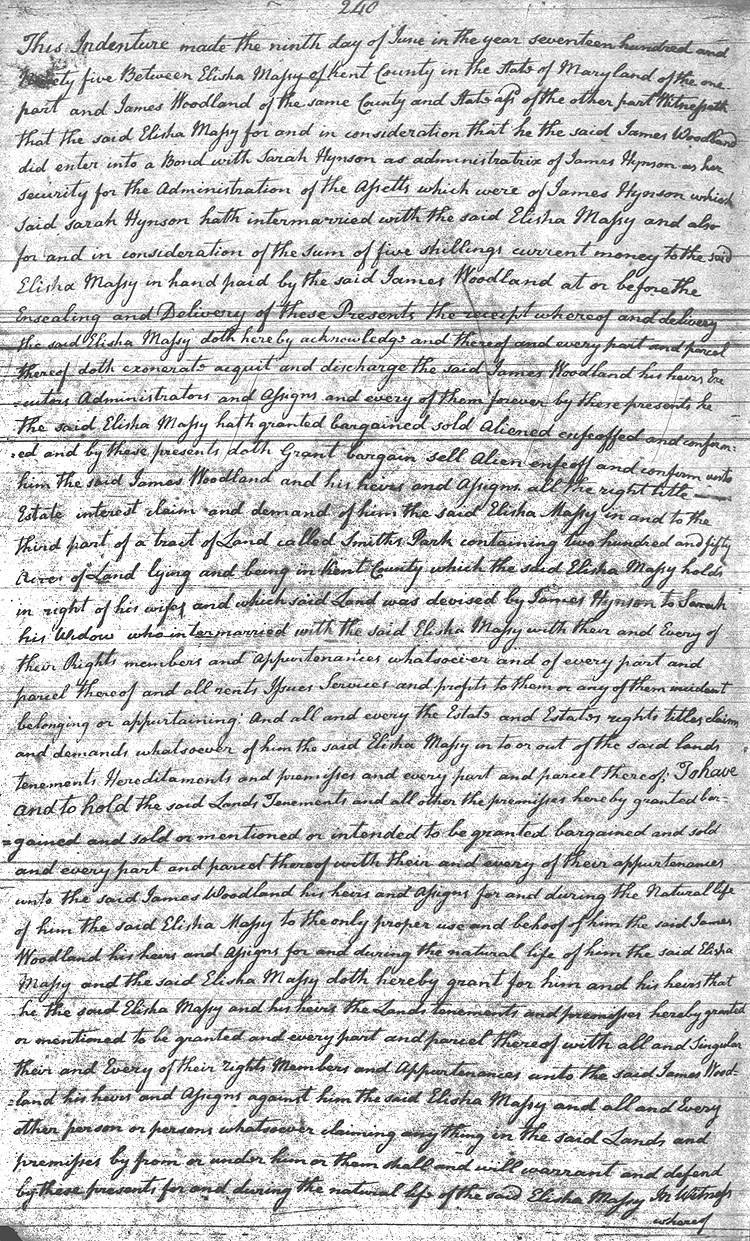 240
This Indenture made the ninth day of June in the year seventeen hundred and
five Between Elisha Massy of Kent County in the State of Maryland of the one
part and James Woodland of the same County and State afs of the other part Witnesseth
that the said Elisha Massy for and in consideration that he the said James Woodland
did enter into a Bond with Sarah Hynson as administratrix of James Hynson as her
security for the Administration of the Assetts which were of James Hynson which
said Sarah Hynson hath intermarried with the said Elisha Massy and also
for and in consideration of the sum of five shillings current money to the said
Elisha Massy in hand paid by the said James Woodland at or before the
Ensealing and Delivery of these Presents the receipt whereof and delivery
the said Elisha Massy doth hereby acknowledge and thereof and every part and parcel
thereof doth exonerate acquit and discharge the said James Woodland his heirs Exe
=cutors Administrators and Assigns and every of them forever by these presents he
the said Elisha Massy hath granted bargained sold Aliened enfeoffed and confirm=
=ed and by these presents doth Grant bargain sell Alien enfeoff and confirm unto
him the said James Woodland and his heirs and Assigns all the right title
Estate interest claim and demand of him the said Elisha Massy in and to the
third part of a tract of Land called Smiths Park containing two hundred and fifty
Acres of Land lying and being in Kent County which the said Elisha Massy holds
in right of his wife and which said Land was devised by James Hynson to Sarah
his Widow who intermarried with the said Elisha Massy with their and Every of
their Rights members and Appurtenances whatsoever and of every part and
parcel thereof and all rents Issues Services and profits to them or any of them incident
belonging or appurtaining: And all and every the Estate and Estates rights titles claim
and demands whatsoever of him the said Elisha Massy in to or out of the said lands
tenements Hereditaments and premisses and every part and parcel thereof; To have
and to hold the said Lands Tenements and all other the premisses hereby granted bar=
=gained and sold or mentioned or intended to be granted bargained and sold
and every part and parcel thereof with their and every of their appurtenances
unto the said James Woodland his heirs and Assigns for and during the Natural life
of him the said Elisha Massy to the only proper use and behoof of him the said James
Woodland his heirs and Assigns for and during the natural life of him the said Elisha
Massy and the said Elisha Massy doth hereby grant for him and his heirs that
he the said Elisha Massy and his heirs the Lands tenements and premisses hereby granted
or mentioned to be granted and every part and parcel thereof with all and Singular
their and Every of their rights Members and Appurtenances unto the said James Wood=
=land his heirs and Assigns against him the said Elisha Massy and all and Every
other person or persons whatsoever claiming any thing in the said Lands and
premisses by from or under him or them shall and will warrant and defend
by these presents for and during the natural life of the said Elisha Massy In Witness
whereof